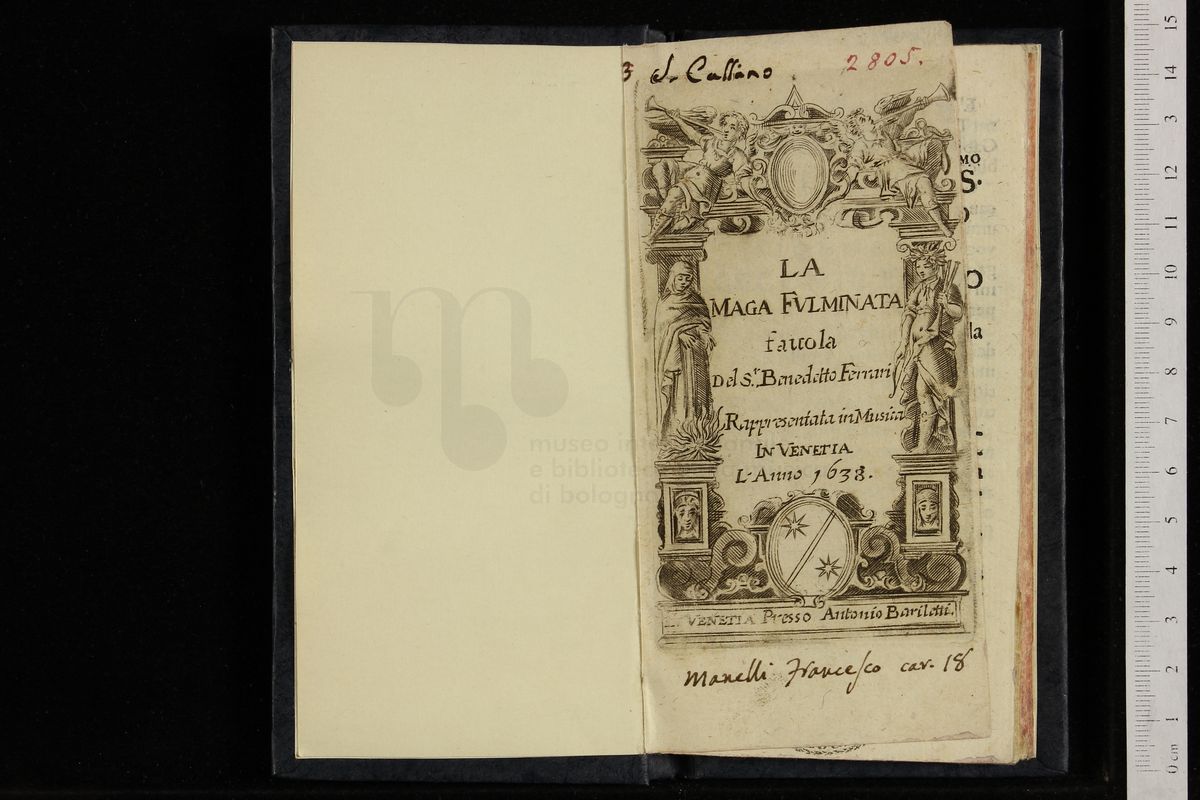 S. Cassano
2805.
LA
MAGA FVLMINATA
fauola
Del S.r Benedetto Ferrari
Rappresentata in Musica
IN VENETIA
L'Anno 1638.
VENETIA Presso Antonio Bariletti.
Manelli Francesco car. 18
MO
S.
O
la
museo
e bibliote
di bologna
15
14
3
12
11
10
9
8
7
6
5
4
3
2
1
0 cm